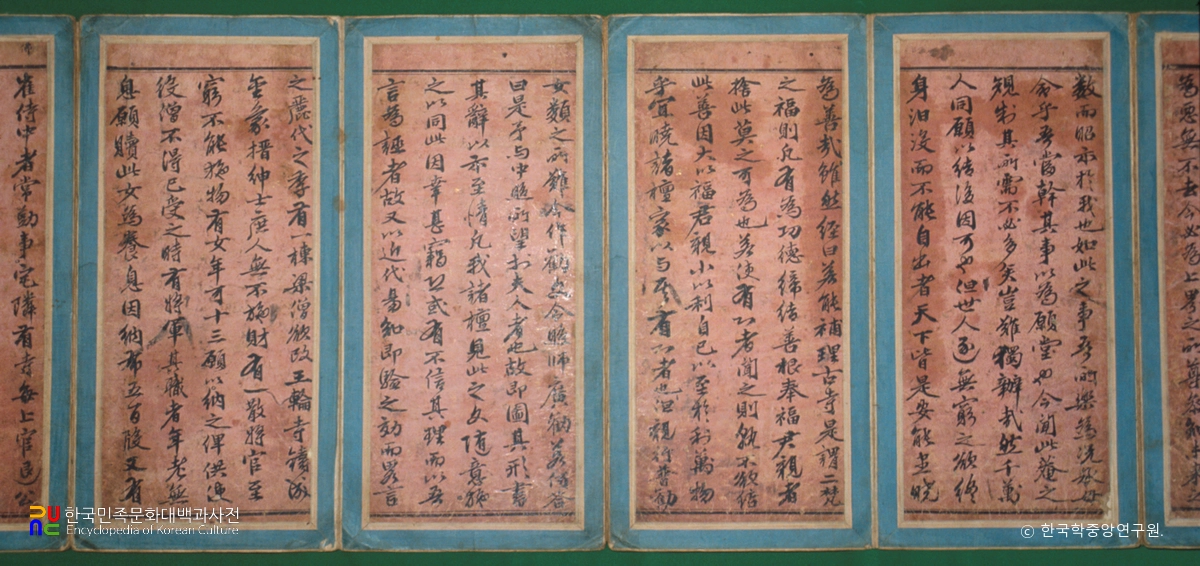 爲惡無不去今必爲上界之所
数而昭示於我也如此之事吾所樂爲況敬母
命乎吾當幹其事以爲願堂也今聞此菴之
規制其所需不必多矣豈難獨辦哉然千萬
人同願以結後因可也但世人逐無窮之欲終
身汨沒而不能自出者天下皆是安能盡曉
爲善哉雖然經曰若能補理古寺是謂二梵
之福則凡有爲功德締結善根奉福君親者
捨此莫之可爲也若使有力者聞之則孰不欲結
此善因大以福君親小以利自己以至於利萬物
乎宜曉諸檀家以与有力者也但親行普勸
女類之所難今作勸令照師廣納
曰是予与中照所望於夫人者也故即圖其形書
其辭以示至情凡我諸檀見此之文随意施
之以同此因幸甚竊又或有不信其理而以吾
言爲誣者故又以近代易知即驗之効而畧言
之麗代之季有一棟梁僧欲改王輪寺鑄成
金像搢紳士庶人無不施財有一散將官至
窮不能施物有女年可十三願以納之俾供使
役僧不得已受之時有將軍具職者年老無
息願贖此女爲養息因納布五百段又有
崔侍中者常勤事宅隣有寺每上官退公
한국민족문화대백과사전
Encyclopedia of Korean Culture
© 한국학중앙연구원.